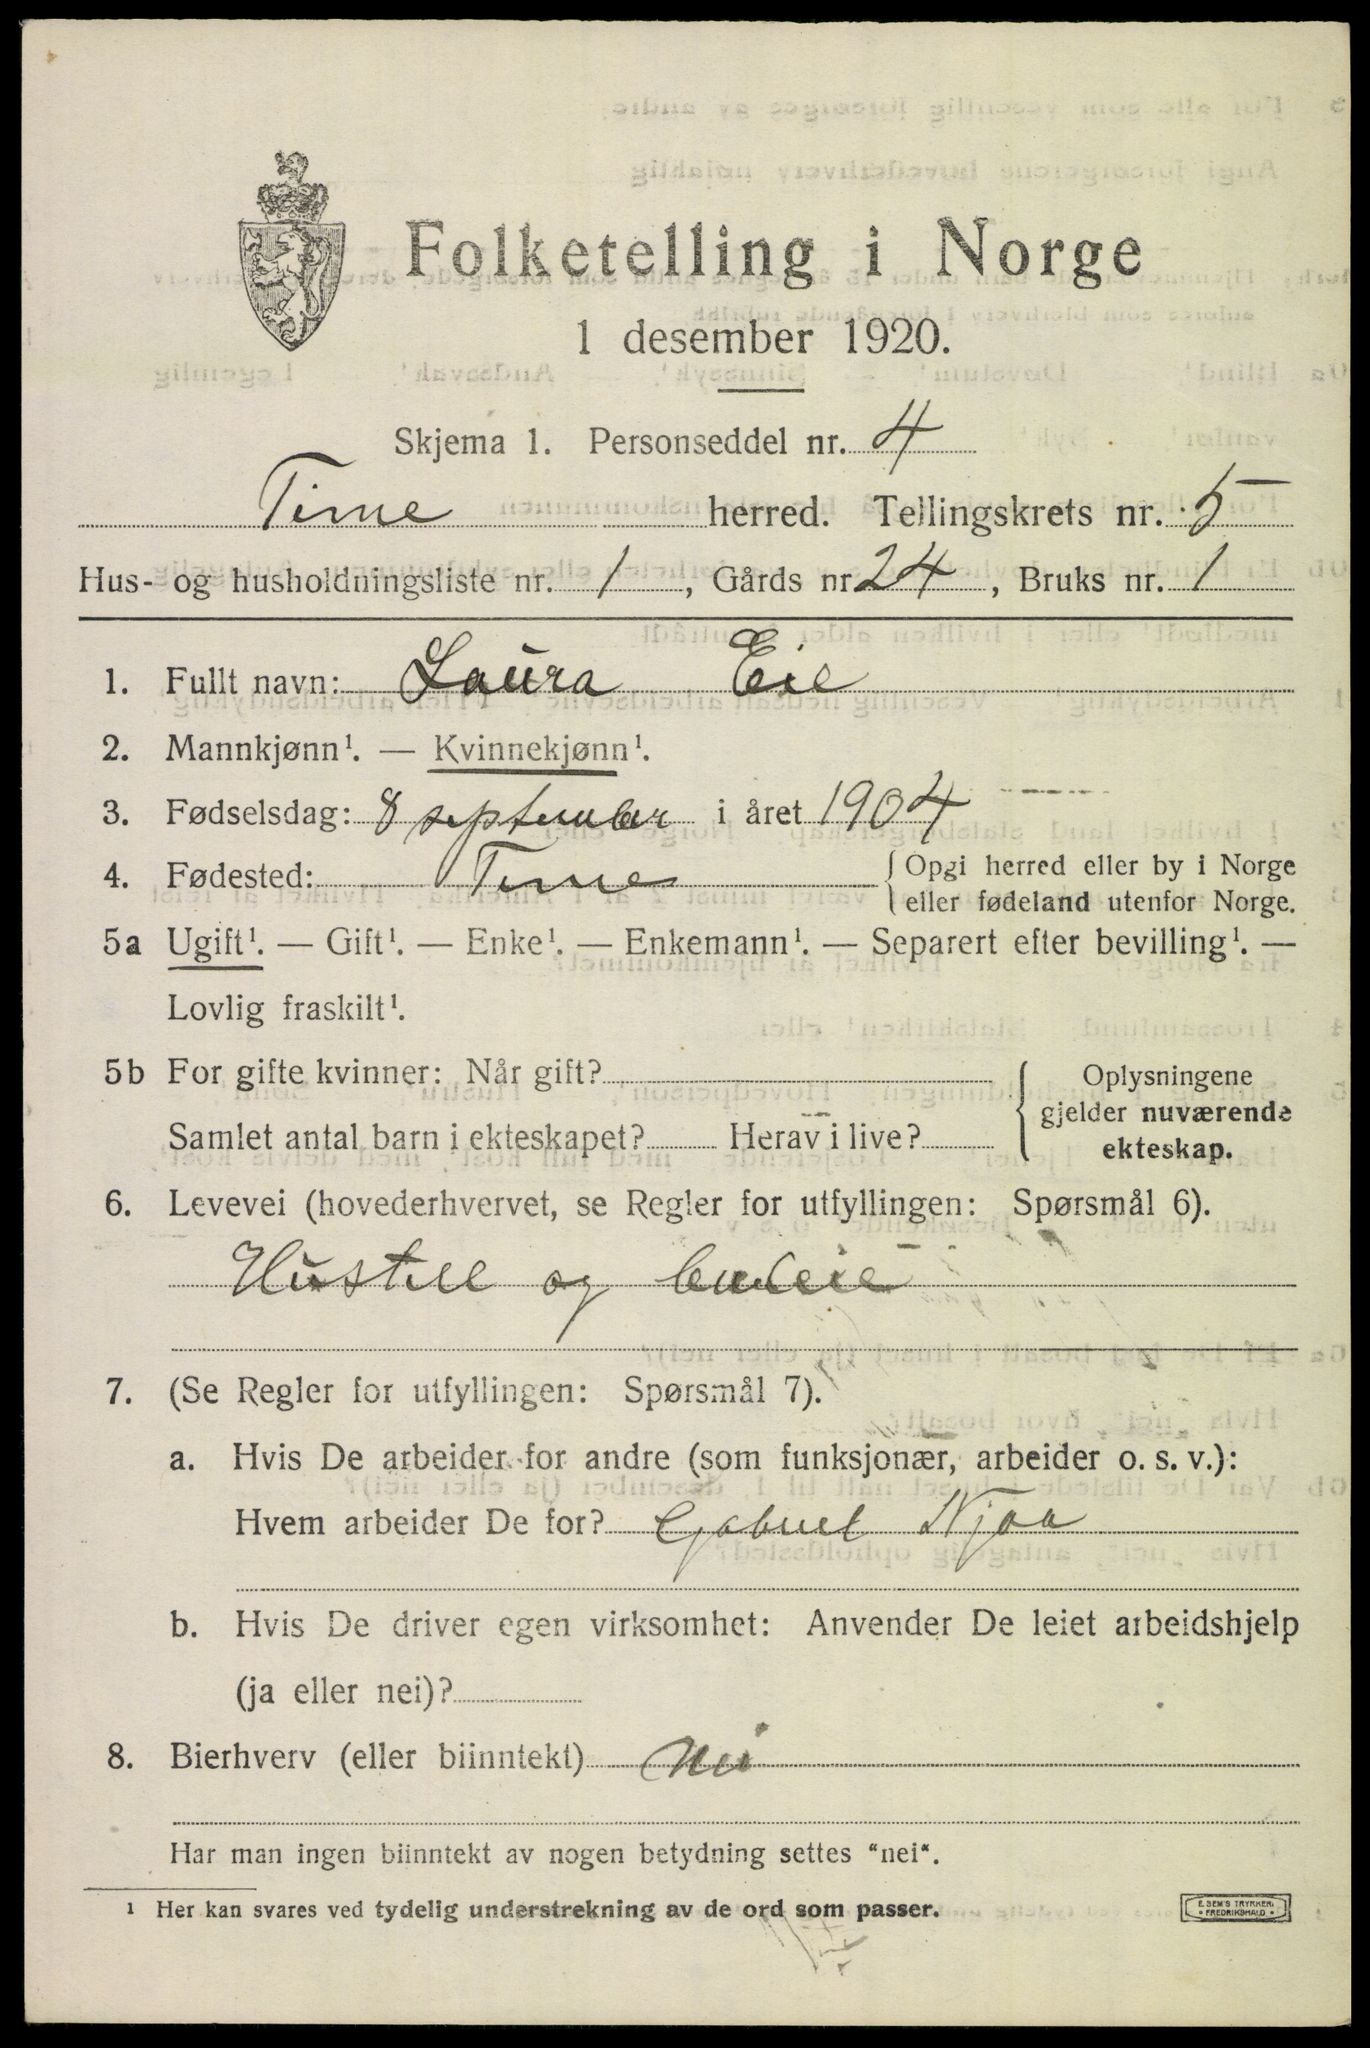 Folketelling i Norge
1 desember 1920.
Skjema 1. Personseddel nr. 4
Time herred. Tellingskrets nr. 5
Hus- og husholdningsliste nr. 1, Gårds nr. 24, Bruks nr. 1
1. Fullt navn: Laura Eie
2. Mannkjønn¹. — Kvinnekjønn¹.
3. Fødselsdag: 8 september i året 1904
4. Fødested: Time { Opgi herred eller by i Norge
eller fødeland utenfor Norge.
5a Ugift¹. — Gift¹. — Enke¹. — Enkemann¹. — Separert efter bevilling¹. —
Lovlig fraskilt¹.
5b For gifte kvinner: Når gift?
Samlet antal barn i ekteskapet? Herav i live?
{ Oplysningene
gjelder nuværende
ekteskap.
6. Levevei (hovederhvervet, se Regler for utfyllingen: Spørsmål 6).
Hustell og
7. (Se Regler for utfyllingen: Spørsmål 7).
a. Hvis De arbeider for andre (som funksjonær, arbeider o. s. v.):
Hvem arbeider De for? Gabriel Njaa
b. Hvis De driver egen virksomhet: Anvender De leiet arbeidshjelp
(ja eller nei)?
8. Bierhverv (eller biinntekt) Nei
Har man ingen biinntekt av nogen betydning settes "nei".
¹ Her kan svares ved tydelig understrekning av de ord som passer.
E. SEM'S TRYKKERI
FREDRIKSHALD